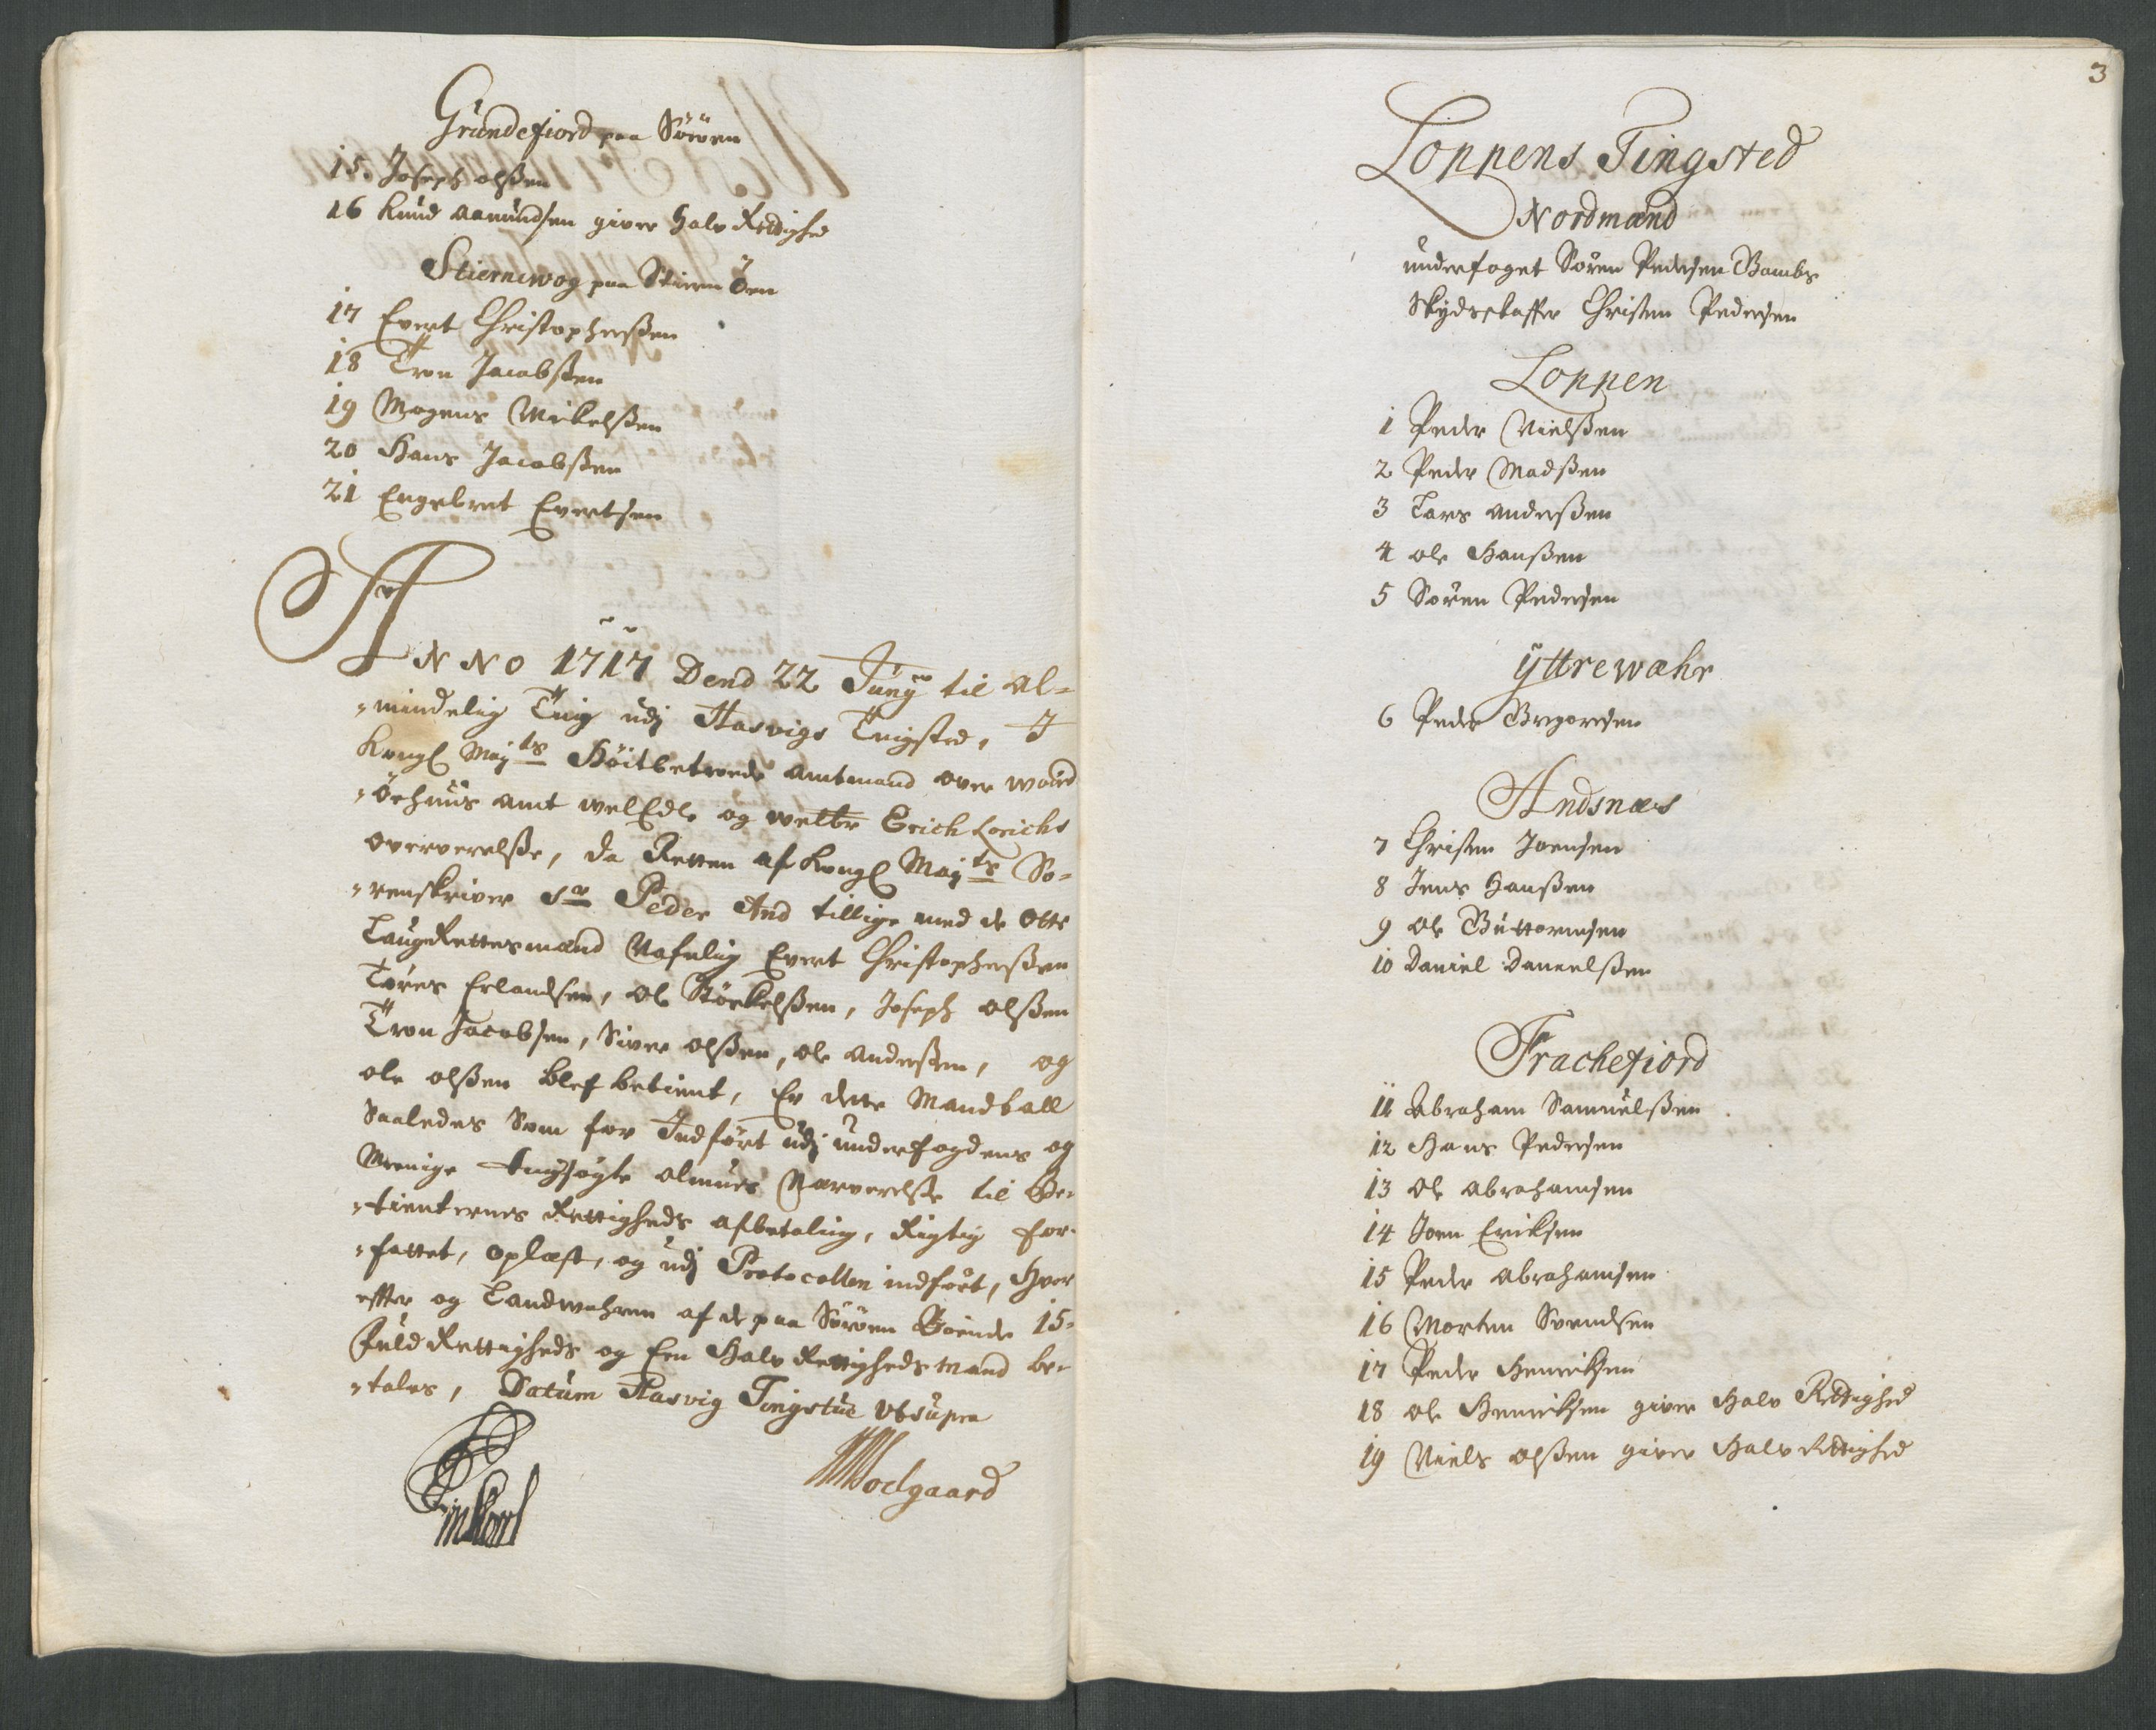 Grundefiord paa Sörøen
15. Joseph olßen
16 Knud Aamundsen giver Halv Rettighed
Stiernewog paa Stiern Öen
17 Evert Christophersßen
18 Tron Jacobßen
19 Mogens Mickelßen
20 Hans Jacobßen
21 Engebret Evertsen
ANNO 1717 Dend 22 Junÿ til al-
-mindelig Ting udj Hasvigs Tingsted, I
Kongl May.ts Höitbetroede Amtmand over Ward
-öehuus Amt welEdle og welbr Erich Lorichs
oververelße, da Retten af Kongl May.ts So-
-renskriver Sr Peder And tillige med de Otte
LaugRettesmænd Nafnlig Evert Christopherßen
Tøres Erlandsen, Ole Störkelßen, Joseph olßen
Tron Jacobsen, Siver olßen, ole Anderßen, og
ole olßen blef betient, Er dette Mandtall
Saaledes Som før Indført udj underfogdens og
Menige tingsøgte almues Nærverelße til Be-
-tienternes Rettigheds afbetaling, Rigtig for-
-fattet, oplæst, og udj Protocollen indført, Hver
effter og Landwahren af de paa Sörøen Boende 15-
Fuld Rettigheds og Een Halv Rettigheds mand be-
-tales, Datum Hasvig Tingstue Ut supra
Wodgaard
3
Loppens Tingsted
Nordmænd
underfoget Søren Pedersen Bambs
Skydsskaffer Christen Pedersen
Loppen
1 Peder Nielßen
2 Peder Madßen
3 Lars Anderßen
4 ole Hanßen
5 Søren Pedersen
ÿttrewæhr
6 Peder Gregorisen
Andsnæs
7 Christen Joensen
8 Jens Hanßen
9 Ole Guttormsen
10 Daniel Danielßen
Frachefiord
11 Abraham Samuelßen
12 Hans Pedersen
13 Ole Abrahamsen
14 Joen Eriksen
15 Peder Abrahamsen
16 Morten Svendsen
17 Peder Henriksen
18 ole Henriksen giver Halv Rettighed
19 Niels olßen giver Halv Rettighed